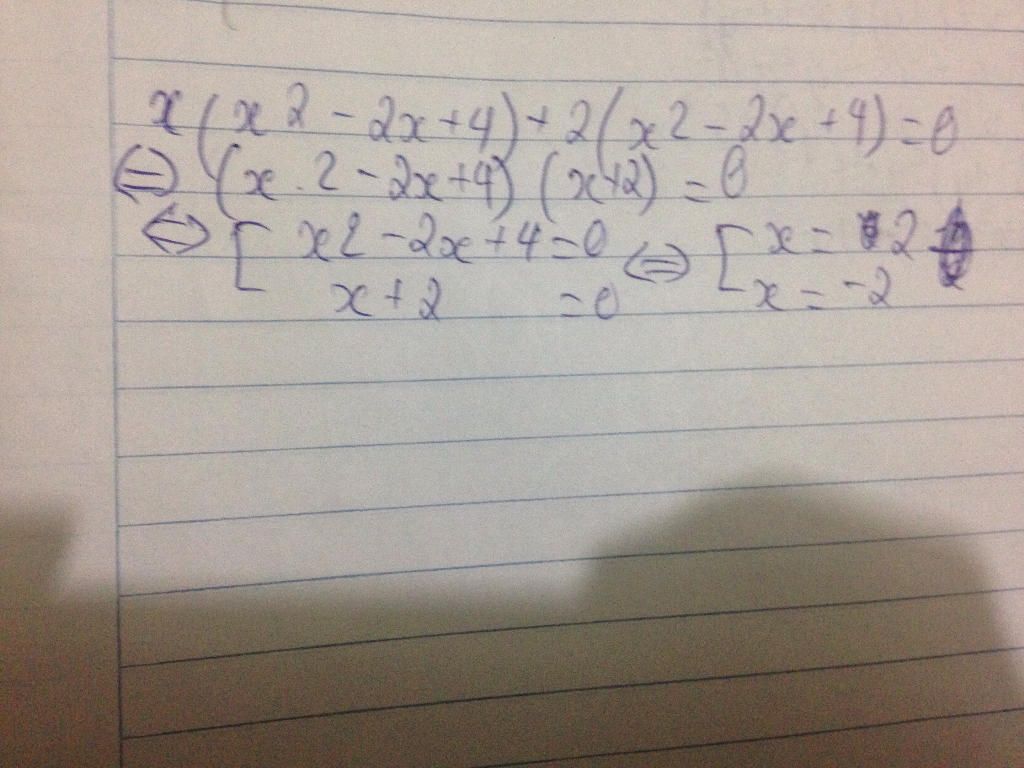 x(x2 - 2x+4) + 2(x2 - 2x + 4) = 0
⇔ (x.2 - 2x+4) (x+2) = 0
⇔ [ x2 - 2x + 4 = 0 ⇔ [ x = 2
x + 2 = 0 x = -2